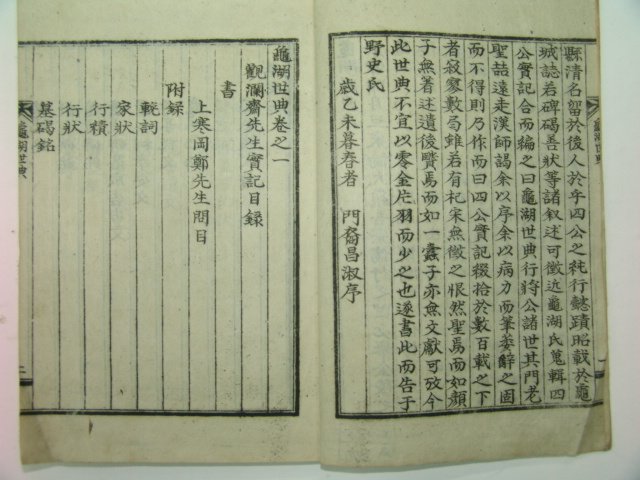 縣清名留於後人於乎四公之純行懿蹟昭載於龜
城誌若碑碣吾狀等諸叙述可徵近龜湖氏蒐輯四
公實記合而編之曰龜湖世典行將公諸世其門老
聖喆遠走漢師謁余以序余以病力而筆委辭之固
而不得則乃作而曰四公實記裰拾於數百載之下
者寂寥數局雖若有杞宋無徵之恨然聖焉而如顔
子無着述遺後賢焉而如一蠹子亦無文獻可攷今
此世典不宜以零金片羽而少之也遂書此而告于
野史氏
歲乙未暮春者 門裔昌淑序
龜湖世典
龜湖世典卷之一
觀瀾齋先生實記目錄
書
上寒岡鄭先生問目
附錄
輓詞
家狀
行蹟
行狀
墓碣銘
龜湖世典
二